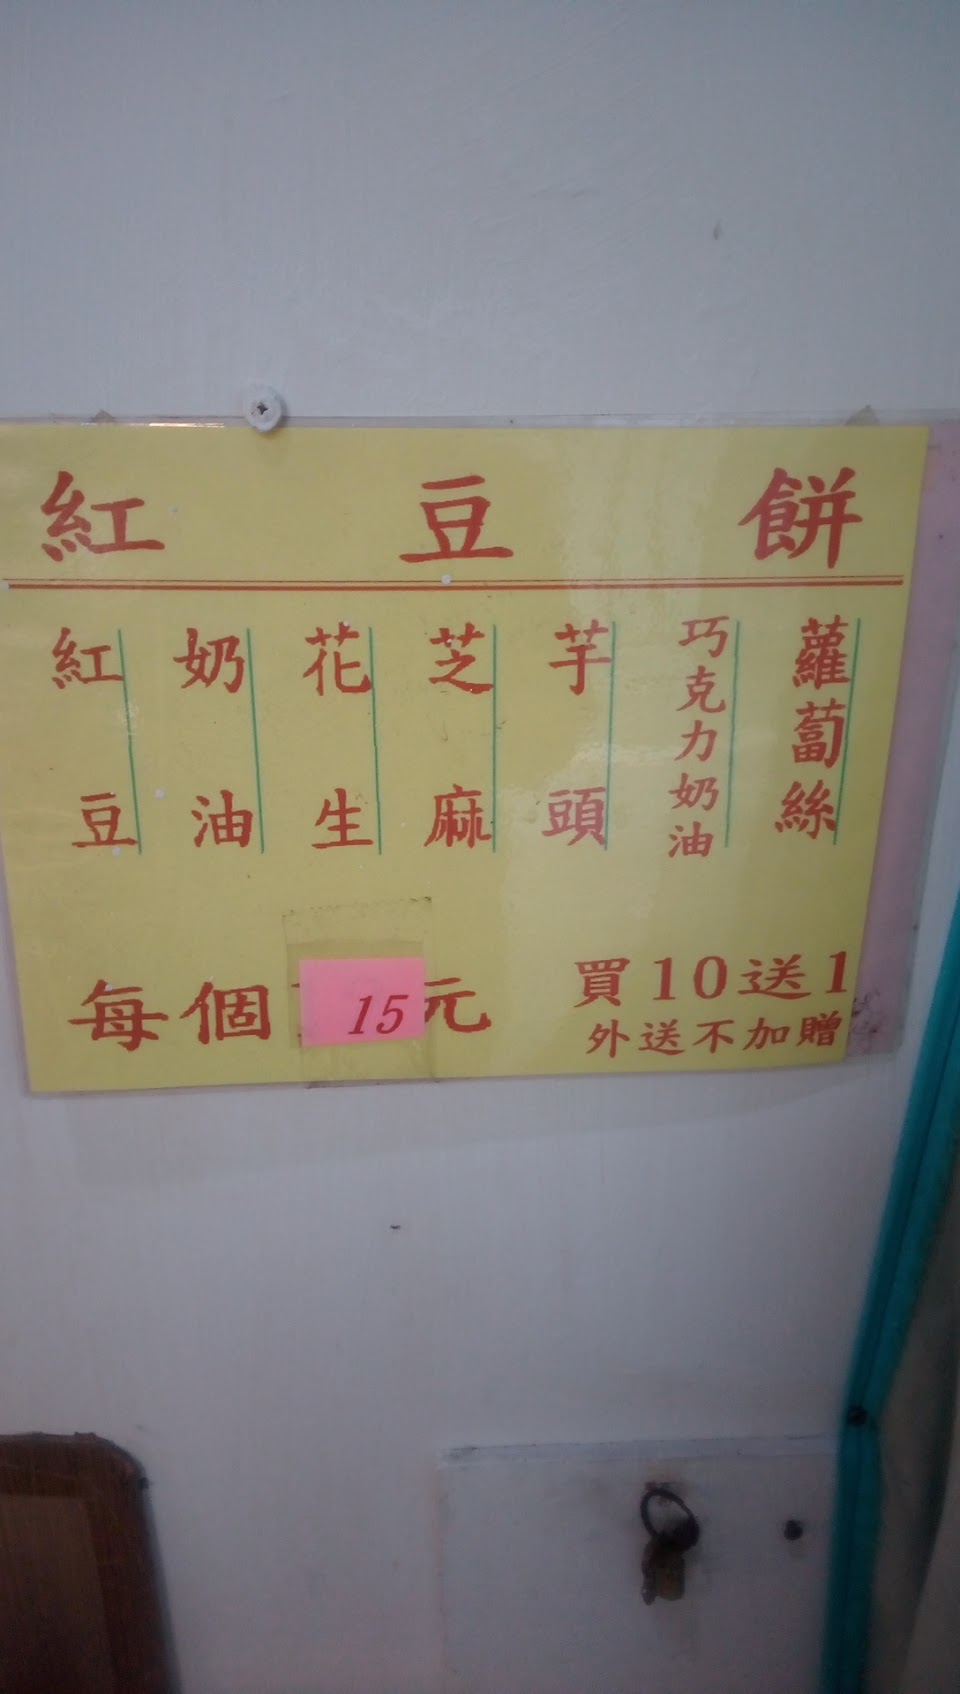 紅豆餅
紅豆
奶油
花生
芝麻
芋頭
巧克力奶油
蘿蔔絲
每個15元
買10送1
外送不加贈